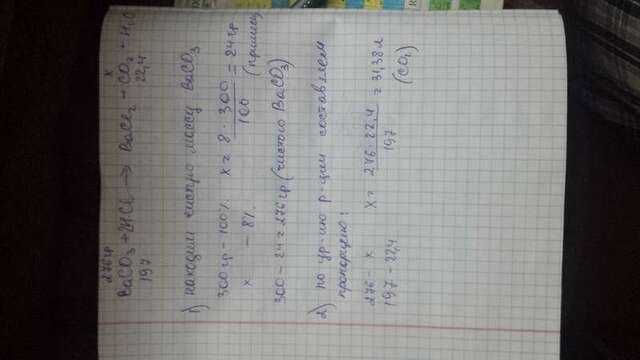 276гр x
BaCO₃ + 2HCl → BaCl₂ + CO₂ + H₂O
197 22,4
1) находим чистую массу BaCO₃
300гр – 100% x = 8 · 300 / 100 = 24гр
x – 8% (примеси)
300 – 24 = 276гр (чистого BaCO₃)
2) по ур-ию р-ции составляем
пропорцию:
276 – x x = 276 · 22,4 / 197 = 31,38л
197 – 22,4 (CO₂)